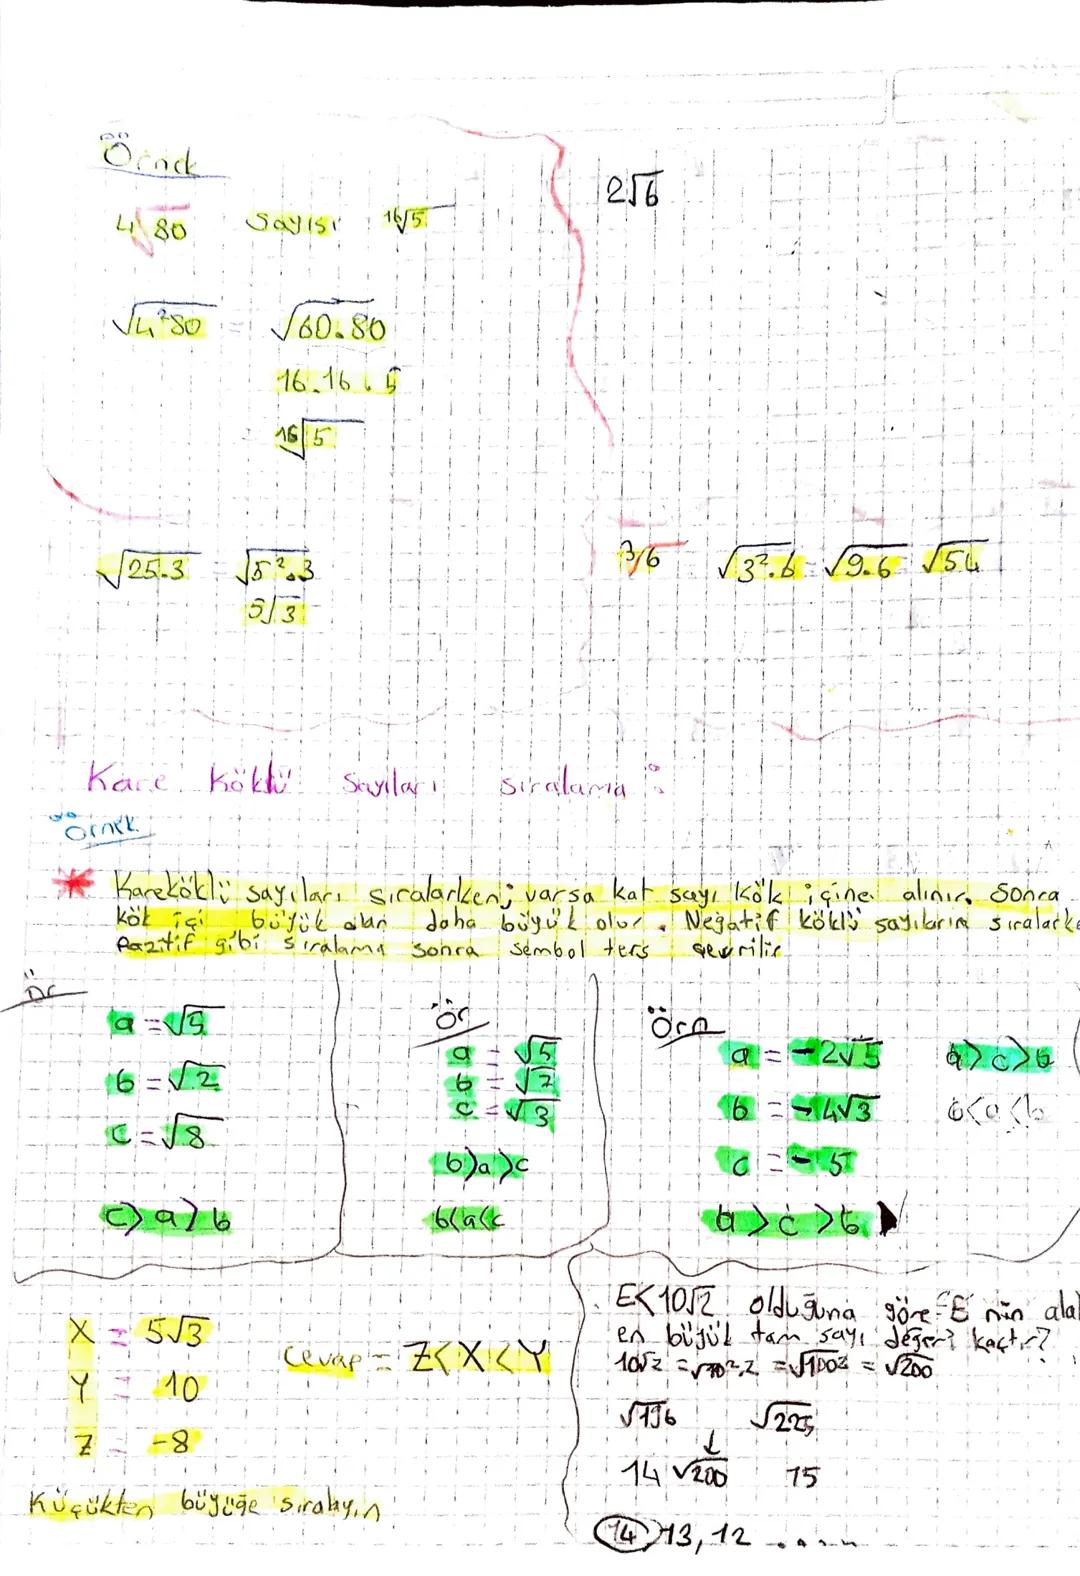 Örnek
4√80 sayısı 16√5
√4²80 = √60.80
16.16.5
16√5
2√6
√25.3 = √5².3
5√3
3√6 √3².6 √9.6 √54
Kare köklü sayıları sıralama :
Örnek
* Kareköklü sayıları sıralarken; varsa kat sayı kök içine alınır. Sonra
kök içi büyük olan daha büyük olur. Negatif köklü sayıların sıralarke
Pozitif gibi sıralama sonra sembol ters çevrilir
Ör
a = √5
b = √2
c = √8
c > a > b
Ör
a = √5
b = √7
c = √3
b > a > c
b < a < c
Örn
a = -2√5 a > c > b
b = -4√3
c = -5
a > c > b
X = 5√3
Y = 10
Z = -8
Cevap = Z < X < Y
Küçükten büyüğe sıralayın
E < 10√2 olduğuna göre E nin alab
en büyük tam sayı değeri kaçtır?
10√2 = √10².2 = √100.2 = √200
√196 √225
14 √200 15
14, 13, 12 .....